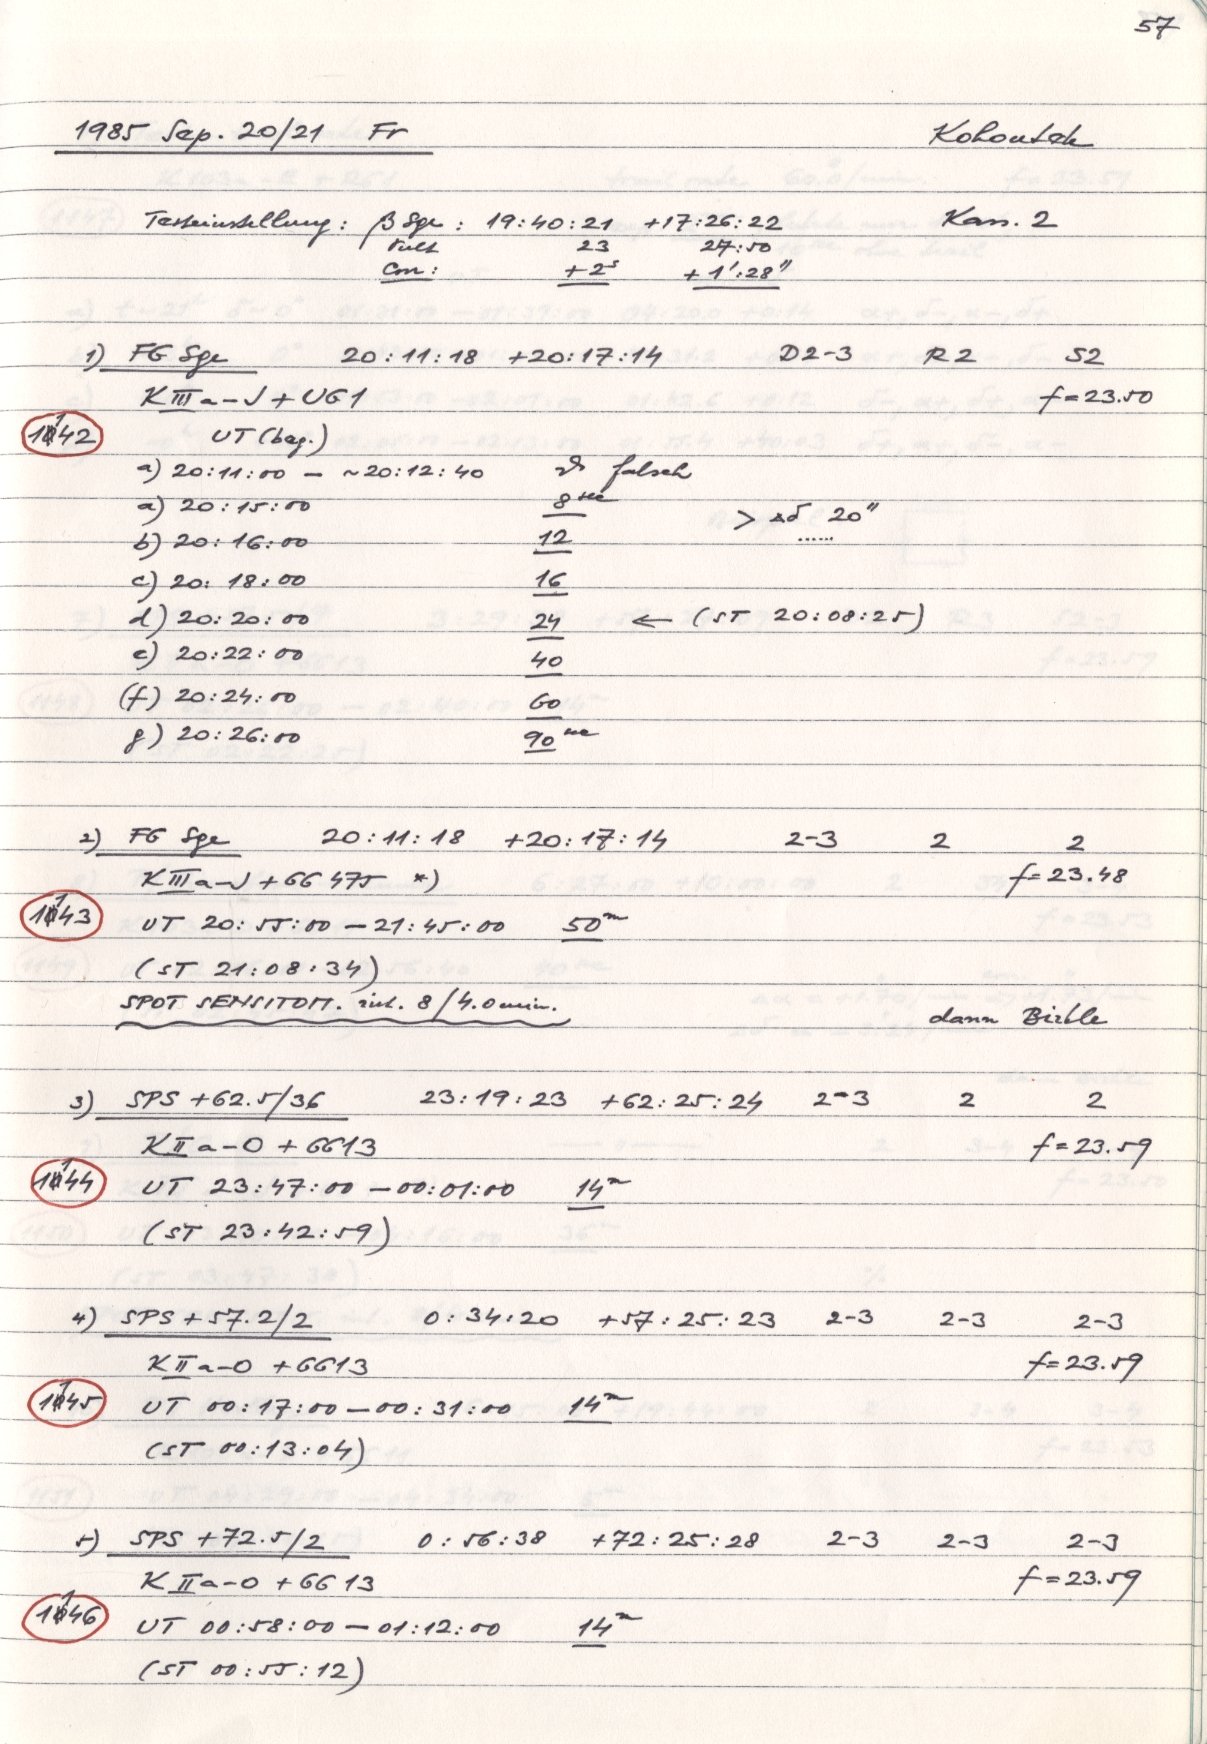 57
1985 Sep. 20/21 Fr Kohoutek
Testeinstellung: β Sge: 19:40:21 +17:26:22 Kass. 2
23 27:50
Corr: +2s +1':28"
1) FG Sge 20:11:18 +20:17:14 D2-3 R2 S2
KIIIa-J + UG1 f=23.50
1142 UT (beg.)
a) 20:11:00 - ~20:12:40 falsch
a) 20:15:00 8sec > Δδ 20"
b) 20:16:00 12
c) 20:18:00 16
d) 20:20:00 24 ← (ST 20:08:25)
e) 20:22:00 40
(f) 20:24:00 60
g) 20:26:00 90sec
2) FG Sge 20:11:18 +20:17:14 2-3 2 2
KIIIa-J + GG475 *) f=23.48
1143 UT 20:55:00 - 21:45:00 50m
(ST 21:08:34)
SPOT SENSITOM. int. 8/4.0min. dann Birtle
3) SPS +62.5/36 23:19:23 +62:25:24 2-3 2 2
KIIa-O + GG13 f=23.59
1144 UT 23:47:00 - 00:01:00 14m
(ST 23:42:59)
4) SPS +57.2/2 0:34:20 +57:25:23 2-3 2-3 2-3
KIIa-O + GG13 f=23.59
1145 UT 00:17:00 - 00:31:00 14m
(ST 00:13:04)
5) SPS +72.5/2 0:56:38 +72:25:28 2-3 2-3 2-3
KIIa-O + GG13 f=23.59
1146 UT 00:58:00 - 01:12:00 14m
(ST 00:55:12)